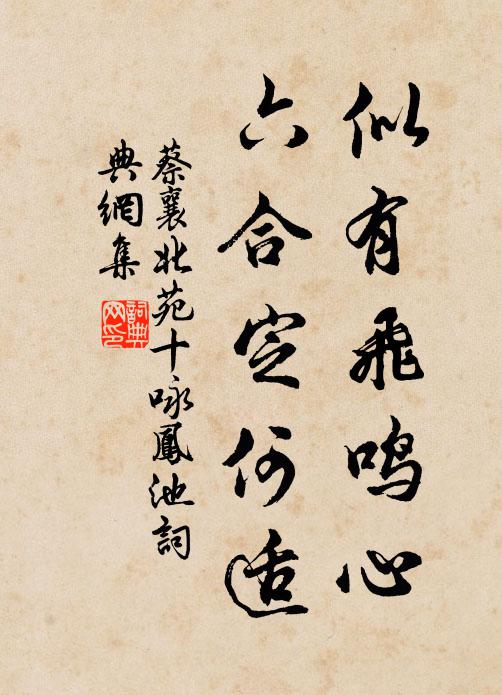 似有飛鳴心
六合定何適
蔡襄北苑十咏鳳池詞
典網集
詞典
网印